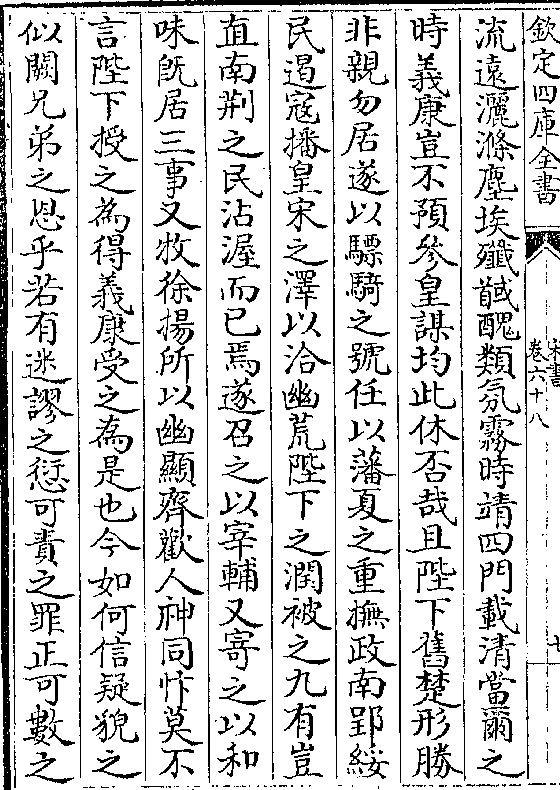 欽定四庫全書
宋書
卷六十八
七
流遠灑滌塵埃殲馘醜類氛霧時靖四門載清當爾之
時義康豈不預參皇謀均此休否哉且陛下舊楚形勝
非親勿居遂以驃騎之號任以藩夏之重撫政南郢綏
民遏寇播皇宋之澤以洽幽荒陛下之潤被之九有豈
直南荆之民沾渥而已焉遂召之以宰輔又寄之以和
味旣居三事又牧徐揚所以幽顯齊歡人神同忭莫不
言陛下授之為得義康受之為是也今如何信疑貌之
似闕兄弟之恩乎若有迷謬之愆可責之罪正可數之